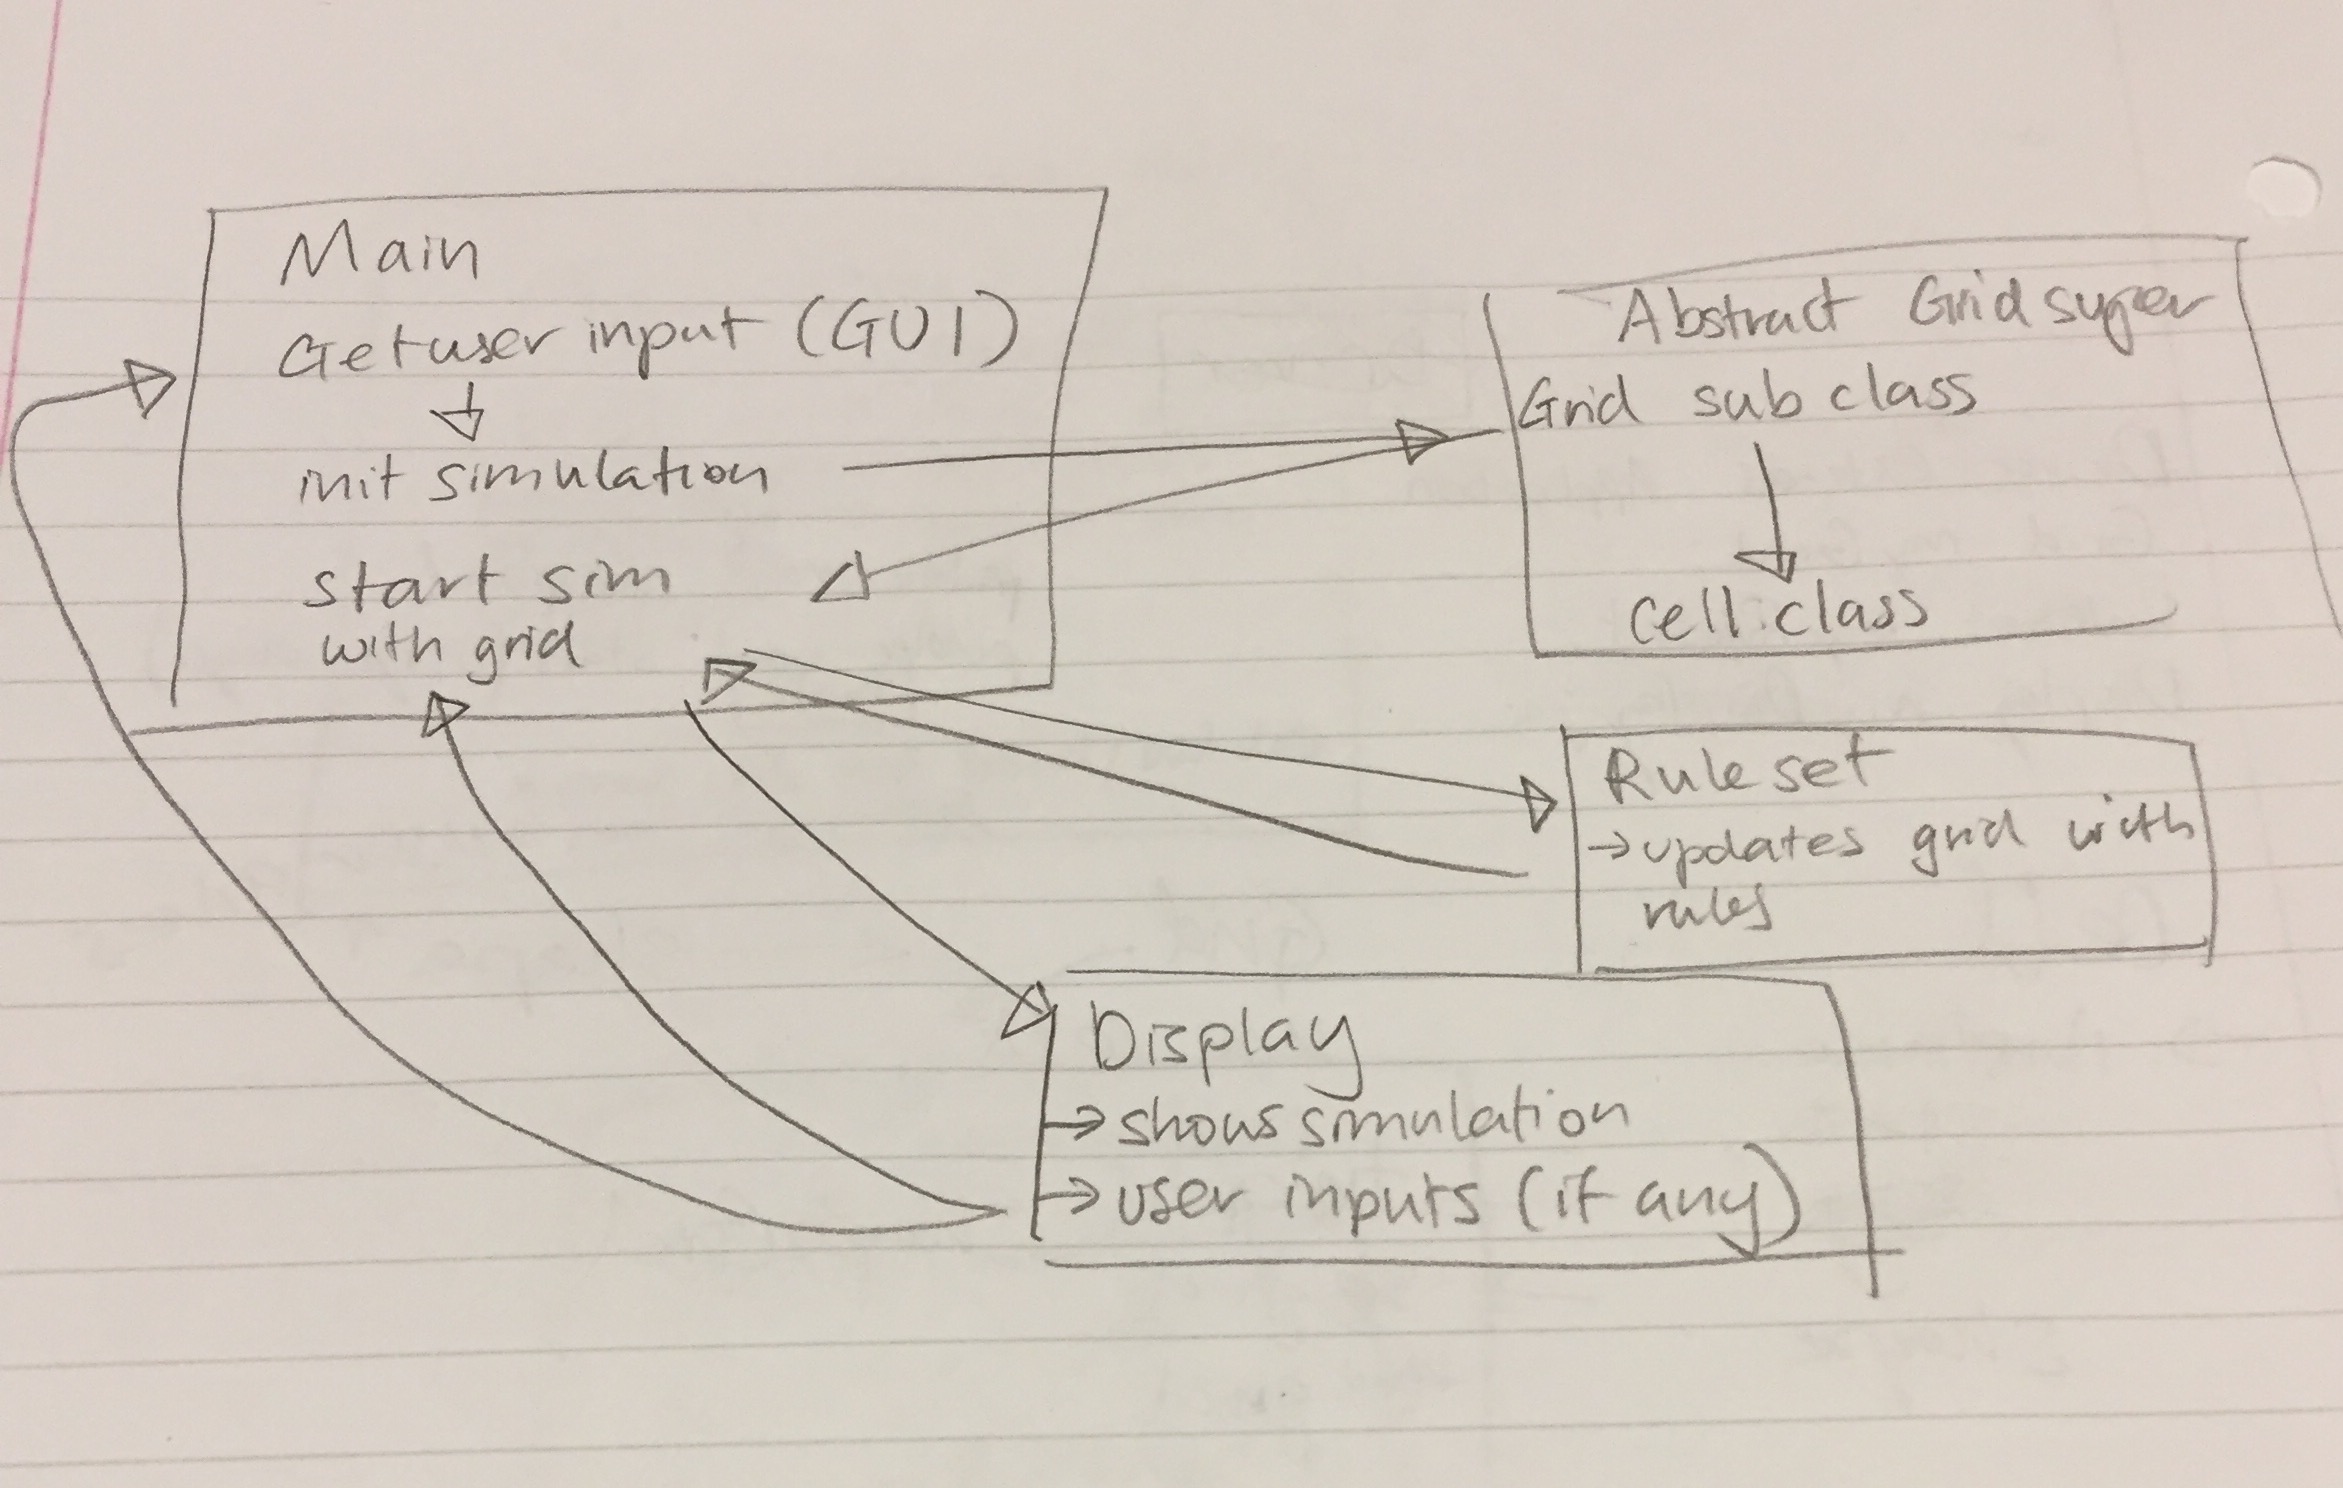 Main
Get user input (GUI)
init simulation
start sim
with grid
Abstract Grid super
Grid sub class
cell class
Rule set
→updates grid with
rules
Display
→shows simulation
→user inputs (if any)